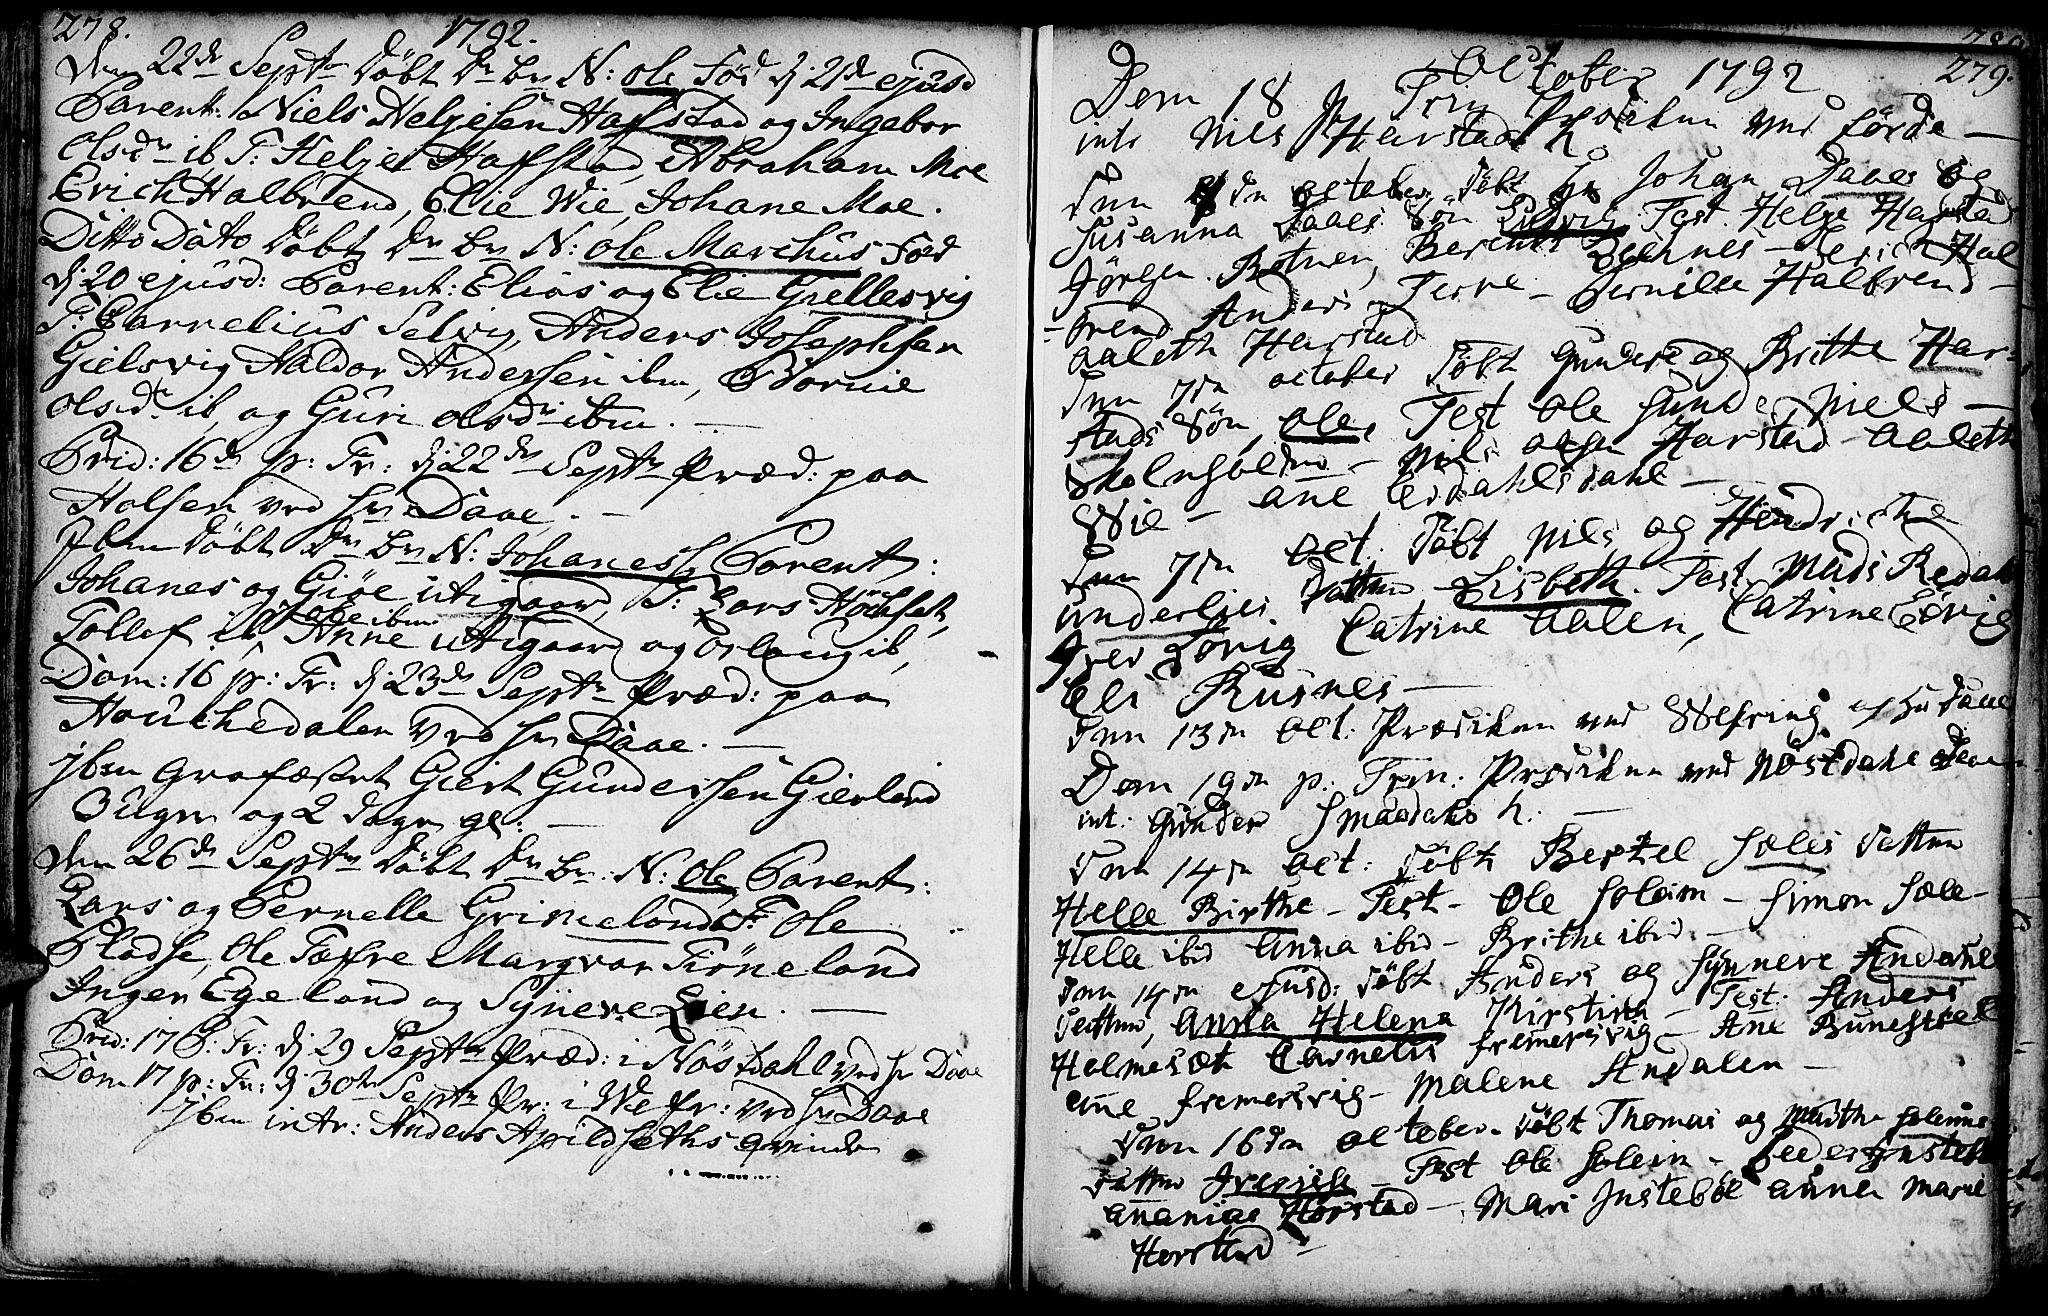 278. 1792.
Den 22de Septr Döbt Dr. Br. N: Ole Föd dj 21de ejusd
Parent: Niels Heljesen Hafstad og Ingebor
Olsdr ib T: Helje Hafstad, Abraham Moe
Erich Halbrend, Elie Wie, Johane Moe.
Ditto Dato Döbt Dr. Br. N: Ole Marchus Föd
dj 20 ejusd: Parent: Elias og Elie Giellesvig
T: Cornelius Selvig, Anders Josephsen
Gielsvig Haldor Andersen ibm,
Olsdr ib, og Guri Olsdr ibm.
Prid: 16de p: Tr: dj 22de Septr Præd: paa
Holsen ved Hr Daae.
Ibm Döbt Dr. Br. N: Johanes Parent:
Johanes og Giöe utigaar, T: Lars
Tollef ib, Ole ibm Anne utigaar og ib,
Dom: 16 p: Tr: dj 23de Septr Præd: paa
Houchedalen ved Hr Daae.
Ibm Grafæstet Giert Gundersen Gierland
3 Uger og 2 dage gl:
Den 26de Septr Döbt Dr. Br. N: Ole Parent:
Lars og Pernelle Grimelond T: Ole
Pladse, Ole Tefre Margvar Tröneland
Inger Egeland og Synneve Lien.
Prid: 17 P: Tr: dj 29 Septr Præd: i Nöstdahl ved Hr Daae
Dom 17 p: Tr: dj 30te Septr Pr: i Wie Pr: ved Hr Daae
Ibm intr: Anders Apildsæths qvinde
October 1792 279.
Dom 18 p Trin Prædiken ved Förde
intr Niels Harstad h.
Den October Döbt Hr Johan Daaes og
Susanna Daaes Sön Ludvig Test. Helge Hafstad
Jörgen Botnen, Berent Bechnes - Erich Hal
brend Anders Terre - Pernille Halbrend -
Aaleth Harstad
Den 7de october Döbt Gunder og Brithe Har-
stads Sön Ole, Test Ole Sunde Niels -
Skolnholder - Niels Harstad Aaleth
Wie - Ane Erdahlsdahl -
Den 7de Oct. Döbt Niels og Hendriche
Underlies Datter Lisbeth. Test Mads Redahl
Iver Lövig Catrine Aalen, Catrine Lövig
Eli Rusnes -
Den 13de Oct: Prædiken ved Wefring af Hr Daae
Dom 19de p. Trin: Prædiken ved Nöstdahl
int: Gunder Smaadals h. -
Den 14de Oct: Döbt Bertel Sæles Datter
Helle Birthe - Test - Ole Soleim - Simon Sæle -
Helle ibid Anna ibid - Brithe ibid -
Den 14de ejusd: Döbt Anders og Synneve Andahls
Datter, Anna Helena Kirstina - Test. Anders
Holmesæt Cornelis Fremersvig - Ane
Ane Fremersvig - Malene Andalen -
Den 16de october Döbt Thomas og Marthe
Datter - Test Ole Solein -
Ananias Horstad - Mari Insteböe Anne Marie
Horstad -